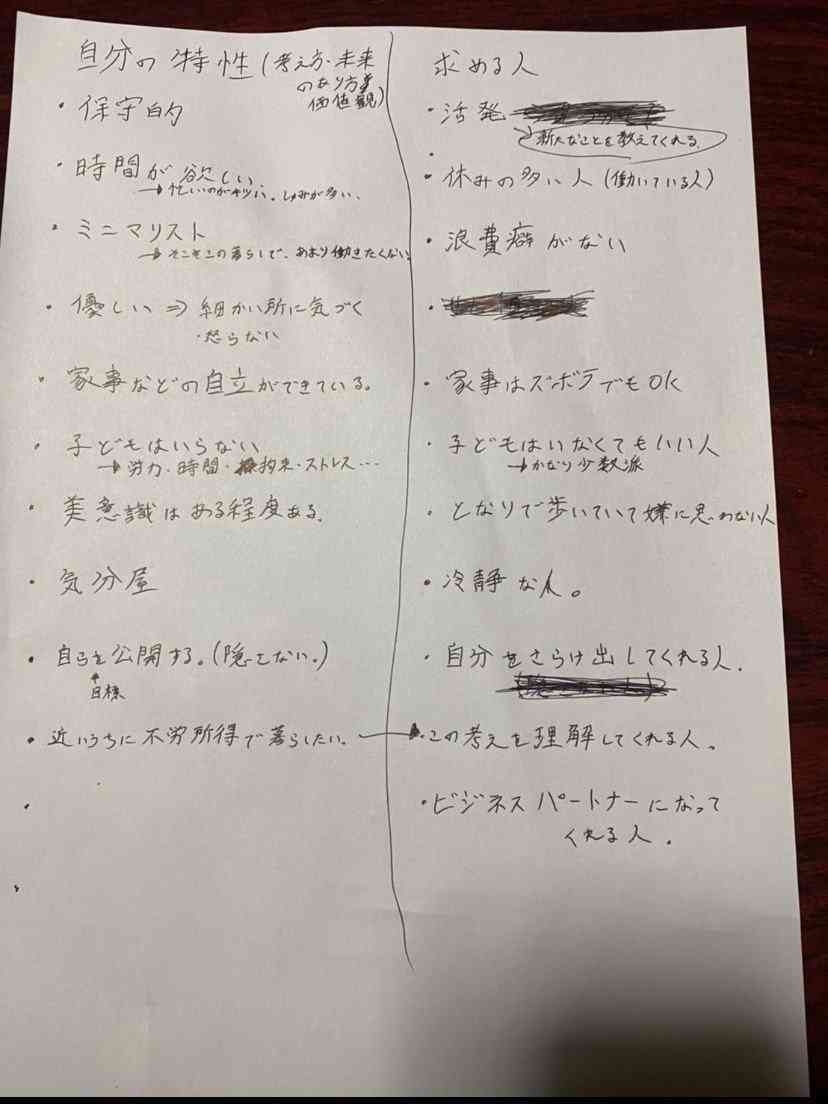 自分の特性(考え方・未来
のあり方
価値観)
・保守的
・時間が欲しい
→忙しいのがキツい。しゅみが多い。
・ミニマリスト
→そこそこの暮らしで、あまり働きたくない
・優しい ⇒ 細かい所に気づく
・怒らない
・家事などの自立ができている。
・子どもはいらない
→労力・時間・拘束・ストレス…
・美意識はある程度ある。
・気分屋
・自らを公開する。(隠さない。)
↑
目標
・近いうちに不労所得で暮らしたい。→
求める人
・活発
→新たなことを教えてくれる。
・休みの多い人(働いている人)
・浪費癖がない
・家事はズボラでもOK
・子どもはいなくてもいい人
→かなり少数派
・となりで歩いていて嫌に思わない人
・冷静な人。
・自分をさらけ出してくれる人.
・この考えを理解してくれる人。
・ビジネスパートナーになって
くれる人.